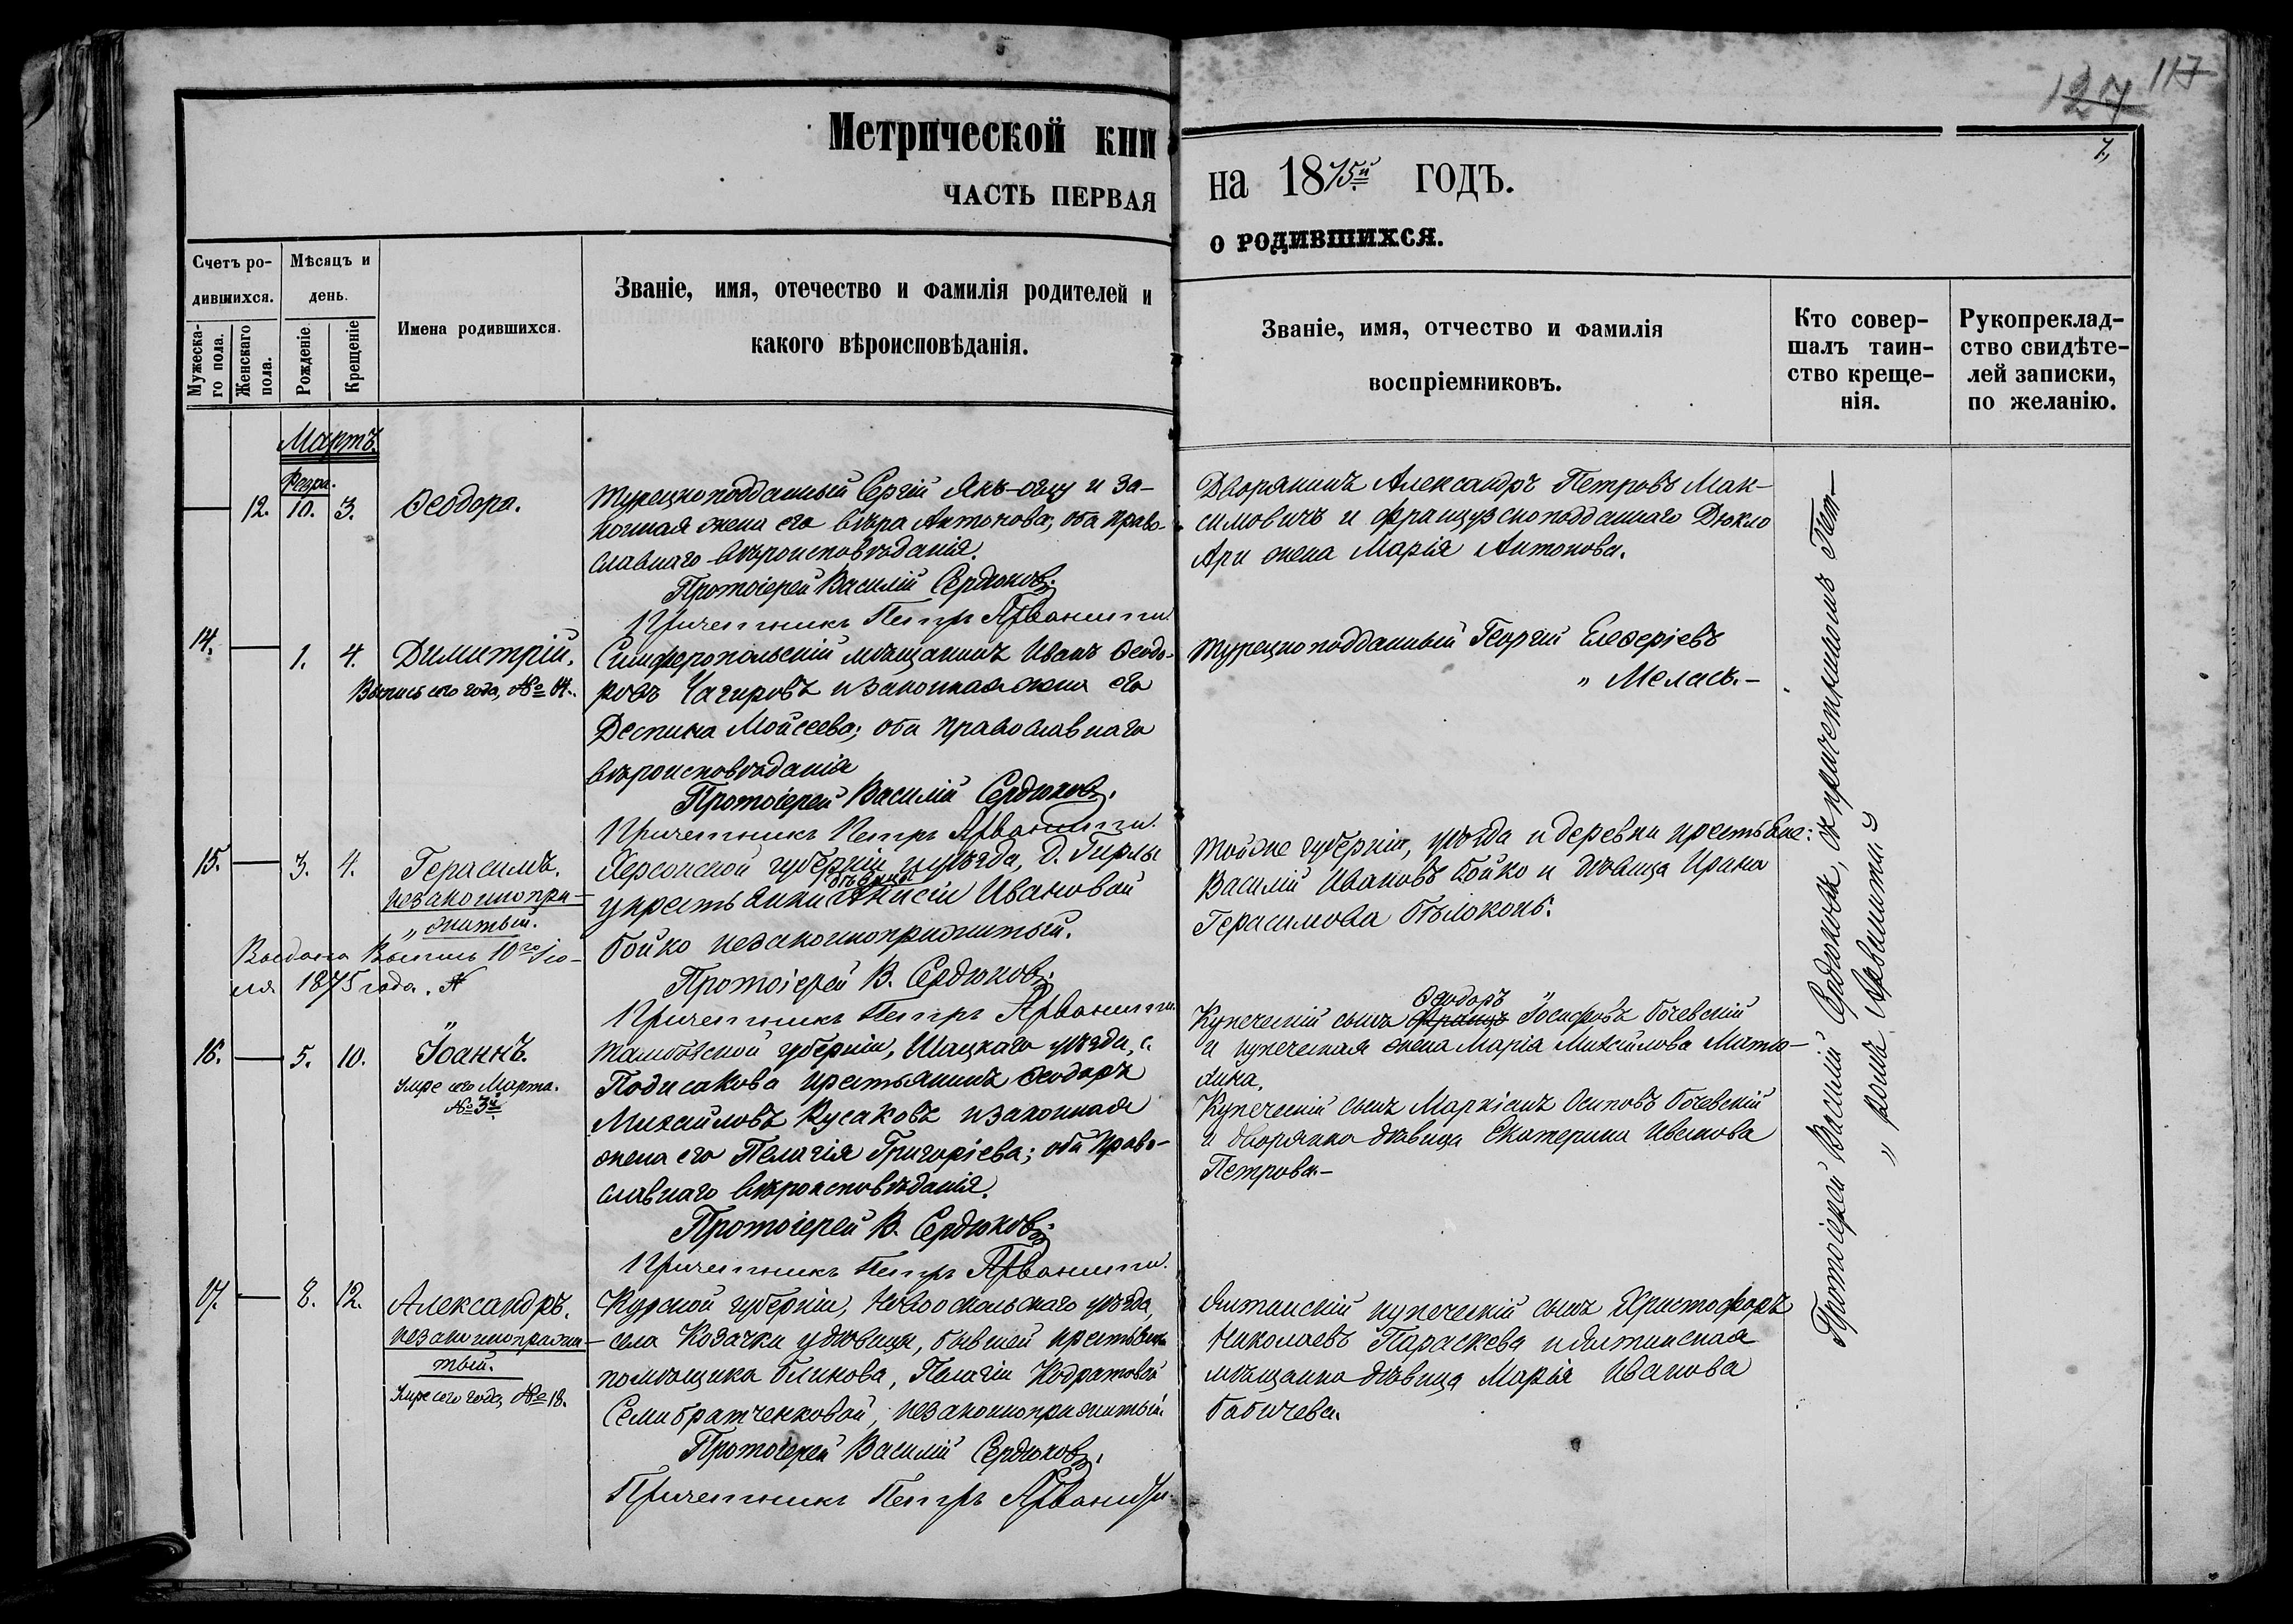 127 117
7,
Метрической кни
на 1875й годъ.
ЧАСТЬ ПЕРВАЯ
о родившихся.
Счетъ ро-
дившихся.
Мѣсяцъ и
день.
Мужеска-
го пола.
Женскаго
пола.
Рожденіе.
Крещеніе
Имена родившихся.
Званіе, имя, отечество и фамилія родителей и
какого вѣроисповѣданія.
Званіе, имя, отчество и фамилія
воспріемниковъ.
Кто совер-
шалъ таин-
ство креще-
нія.
Рукопреклад-
ство свидѣте-
лей записки,
по желанію.
Мартъ.
12. 10. 3. Ѳеодора.
Турецкоподданный Сергій Якъ-оглу и за-
конная жена его Вѣра Антонова; оба право-
славнаго вѣроисповѣданія.
Протоіерей Василій Сердюковъ.
Причетникъ Петръ Арванитти.
Дворянинъ Александръ Петровъ Мак-
симовичъ и французскоподданнаго Дюкло
Ари жена Марія Антонова.
14. 1. 4. Димитрій.
Выпись сего года, №
Симферопольскій мѣщанинъ Иванъ Ѳеодо-
ровъ Чагировъ и законная жена его
Деспина Мойсеева; оба православнаго
вѣроисповѣданія
Протоіерей Василій Сердюковъ.
Причетникъ Петръ Арванитти.
Турецкоподданный Георгій Елеѳеріевъ
„ Меласъ.-
15. 3. 4. Герасимъ.
незаконнопри-
„ житый.
Выдана Выпись 10го Ію-
ля 1875 года. №
Херсонской губерніи и уѣзда, д. Гирлы
у крестьянки дѣвицы Анисіи Ивановой
Бойко незаконноприжитый.
Протоіерей В. Сердюковъ.
Причетникъ Петръ Арванитти.
Тойже губерніи, уѣзда и деревни крестьяне:
Василій Ивановъ Бойко и дѣвица Ирина
Герасимова Бѣлоконь.
16. 5. 10. Іоаннъ.
Умре сего Марта.
№ 3й
Тамбовской губерніи, Шацкаго уѣзда, с.
Подисакова крестьянинъ Ѳеодоръ
Михайловъ Кусаковъ и законная
жена его Пелагія Григоріева; оба право-
славнаго вѣроисповѣданія.
Протоіерей В. Сердюковъ.
Причетникъ Петръ Арванитти.
Ѳеодоръ
Купеческій сынъ Францъ Іосифовъ Бочевскій
и купеческая жена Марія Михайлова Матю-
хина.
Купеческій сынъ Маркіанъ Осиповъ Бочевскій
и дворянка дѣвица Екатерина Иванова
Петрова.-
17. 8. 12. Александръ.
незаконноприжи-
тый.
Умре сего года, № 18.
Курской губерніи, Новооскольскаго уѣзда
села Козачки у дѣвицы, бывшей крестьянки
помѣщика Бликова, Пелагіи Кодратовой
Семибратченковой, незаконноприжитый
Протоіерей Василій Сердюковъ.
Причетникъ Петръ Арванитти.
Ялтинскій купеческій сынъ Христофоръ
Николаевъ Параскева и ялтинская
мѣщанка дѣвица Марія Иванова
Бабичева.
Протоіерей Василій Сердюковъ, съ причетникомъ Пет-
„ ромъ Арванитти